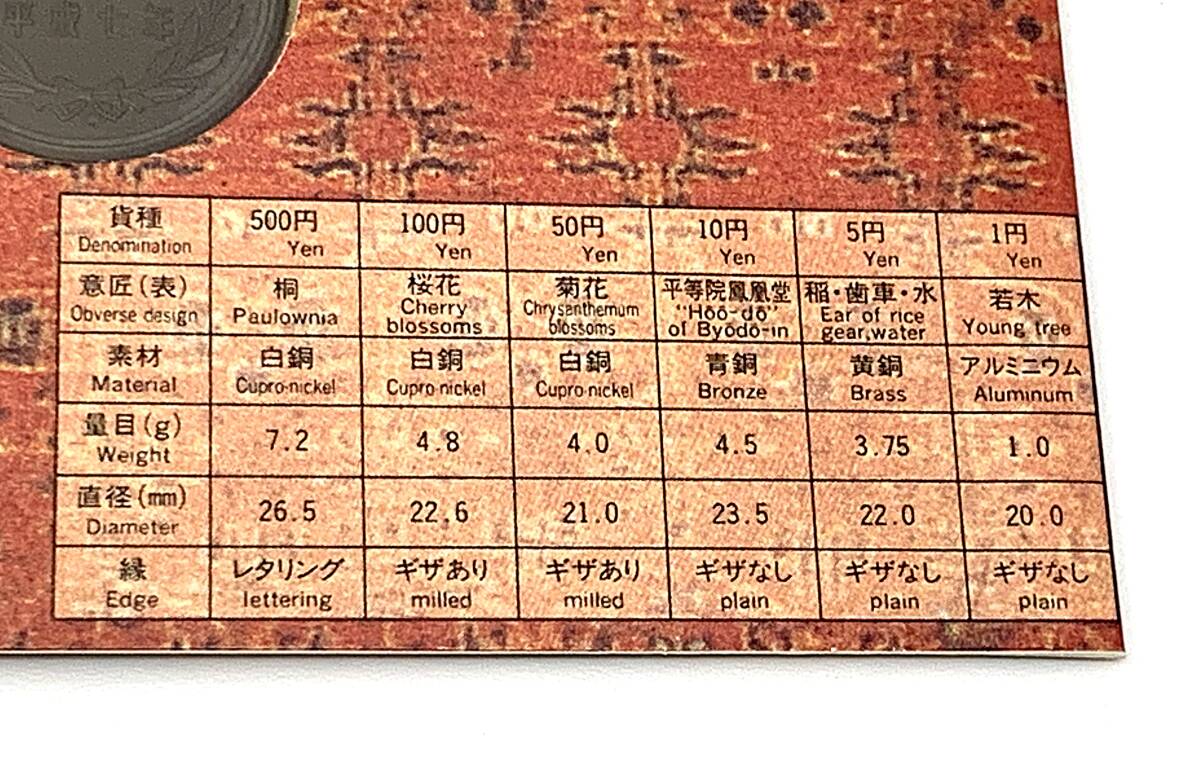 平成七年
貨種 500円 100円 50円 10円 5円 1円
Denomination Yen Yen Yen Yen Yen Yen
意匠(表) 桐 桜花 菊花 平等院鳳凰堂 稲・歯車・水 若木
Obverse design Paulownia Cherry blossoms Chrysanthemum blossoms "Hōō-dō" of Byōdō-in Ear of rice gear,water Young tree
素材 白銅 白銅 白銅 青銅 黄銅 アルミニウム
Material Cupro-nickel Cupro-nickel Cupro-nickel Bronze Brass Aluminum
量目(g) 7.2 4.8 4.0 4.5 3.75 1.0
Weight
直径(mm) 26.5 22.6 21.0 23.5 22.0 20.0
Diameter
縁 レタリング ギザあり ギザあり ギザなし ギザなし ギザなし
Edge lettering milled milled plain plain plain